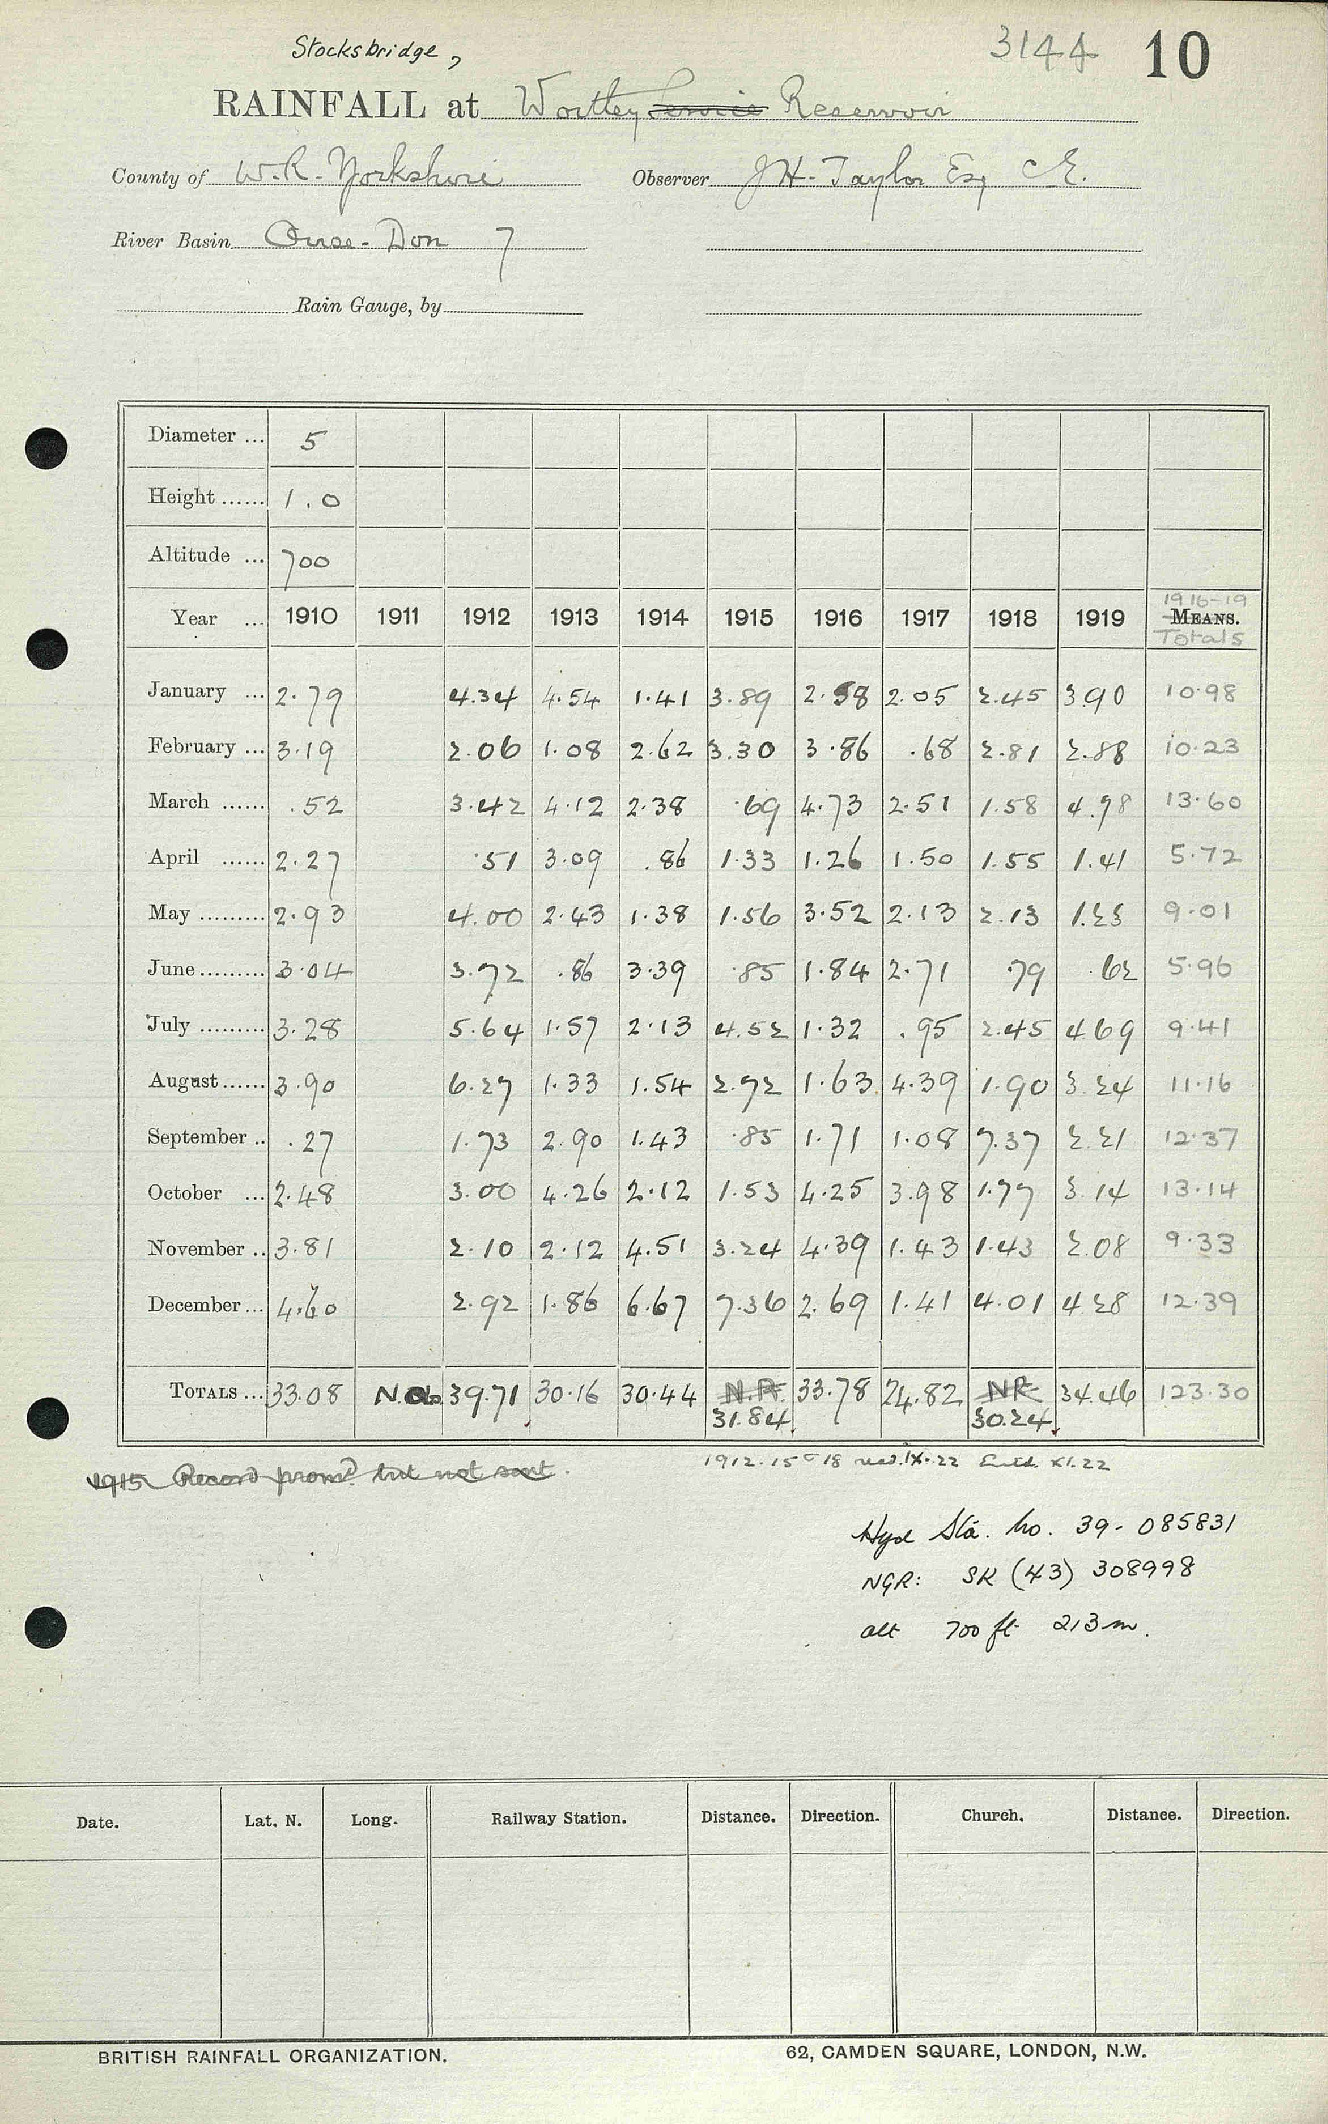 Stocksbridge,
3144 10
RAINFALL at Wortley Service Reservoir
County of W.R. Yorkshire Observer J H. Taylor Esq C.E.
River Basin Ouse - Don 7
Rain Gauge, by
Diameter ... 5
Height ...... 1.0
Altitude ... 700
1916-19
Year ... 1910 1911 1912 1913 1914 1915 1916 1917 1918 1919 MEANS.
Totals
January ... 2.79 4.34 4.54 1.41 3.89 2.58 2.05 2.45 3.90 10.98
February ... 3.19 2.06 1.08 2.62 3.30 3.86 .68 2.81 2.88 10.23
March ...... .52 3.42 4.12 2.38 .69 4.73 2.51 1.58 4.78 13.60
April ...... 2.27 .51 3.09 .86 1.33 1.26 1.50 1.55 1.41 5.72
May ......... 2.93 4.00 2.43 1.38 1.56 3.52 2.13 2.13 1.23 9.01
June ......... 3.04 3.72 .86 3.39 .85 1.84 2.71 .79 .62 5.96
July ......... 3.28 5.64 1.57 2.13 4.52 1.32 .95 2.45 4.69 9.41
August ...... 3.90 6.27 1.33 1.54 2.72 1.63 4.39 1.90 3.24 11.16
September .. .27 1.73 2.90 1.43 .85 1.71 1.08 7.37 2.21 12.37
October ... 2.48 3.00 4.26 2.12 1.53 4.25 3.98 1.77 3.14 13.14
November .. 3.81 2.10 2.12 4.51 3.24 4.39 1.43 1.43 2.08 9.33
December ... 4.60 2.92 1.86 6.67 7.36 2.69 1.41 4.01 4.28 12.39
TOTALS ... 33.08 N.O. 39.71 30.16 30.44 N.R. 33.78 24.82 NR 34.46 123.30
31.84 30.24
1915 Record promd but not sent.
1912. 15 & 18 recd. IX.22 Entd XI.22
Hyd Sta. No. 39- 085831
NGR: SK (43) 308998
alt 700 ft 213m.
Date. Lat. N. Long. Railway Station. Distance. Direction. Church. Distance. Direction.
BRITISH RAINFALL ORGANIZATION. 62, CAMDEN SQUARE, LONDON, N.W.